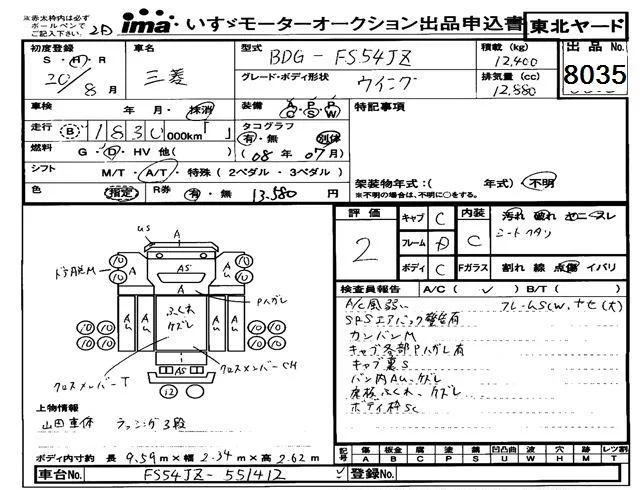 ※赤太枠内は必ず
ボールペンで
ご記入下さい
ima いすゞモーターオークション出品申込書 東北ヤード
初度登録 車名 型式 BDG-FS54JZ 積載 (kg) 12,400 出品 No.
S・H・R 三菱 グレード・ボディ形状 ウイング 排気量 (cc) 12,880 8035
20/8月
車検 年 月・抹消 装備 A/C P/S P/W 特記事項
走行 B 1830 000km タコグラフ 有・無 別体
燃料 G・D・HV 他( ) (08年07月)
シフト M/T・A/T・特殊(2ペダル・3ペダル) 架装物年式:( 年式)・不明
※不明の場合は、不明に○をする。
色 指定 R券 有・無 13,580 円
評価 キャブ C 内装 汚れ 破れ ヤニ スレ
2 フレーム D C シートヘタリ
ボディ C Fガラス 割れ 線 点傷 イバリ
検査員報告 A/C( ✓ ) B/T( )
A/C風弱い フレームSCW、サビ(大)
SRSエアバック警告有
カンバンM
キャブ各部Pハガレ有
キャブ裏S
バン内AU、ケズレ
床板ふくれ、ケズレ
ボディ枠SC
US
A
AS
Pハガレ
ふくれ
ケズレ
クロスメンバーT
クロスメンバーCH
AS
12
上物情報
山田車体 ラッシング3段
ボディ内寸約 長 9.59m×幅 2.34m×高 2.62m
記号 傷 A 板金 B 腐 C 塗 P 錆 S 凹凸曲 U 波 W 穴 H 跡 M レツ割 T
車台No. FS54JZ-551412 登録No.